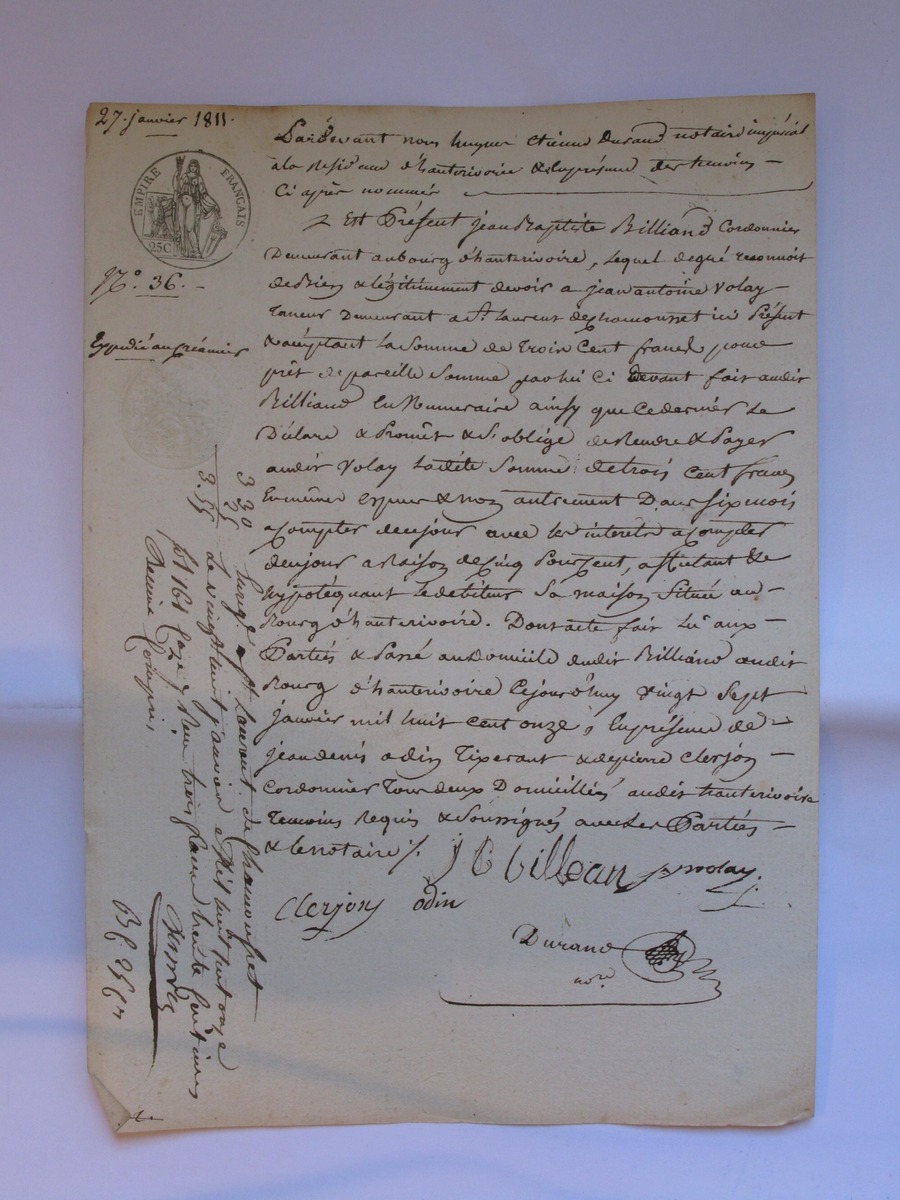 27. janvier 1811.
EMPIRE FRANÇAIS
25C
N.o 36. -
Expédié au Créancier
Pardevant nous hugue etienne Durand notaire impérial
a la residence d'hauterivoire & en présence des temoins -
Ci après nommés
Est Présent jean Baptiste Billiand Cordonnier
Demeurant au bourg d'hauterivoire, lequel de gré reconnoit
de Bien & légitimement devoir a jean antoine Volay -
Taneur Demeurant a St. laurent de chamousset ici Présent
& acceptant la Somme de Trois Cent francs pour
prêt de pareille Somme par lui Ci devant fait audit
Billiand En Numeraire ainsy que Ce dernier Le
Déclare & Promêt & S'oblige de Rendre & Payer
audit Volay Ladite Somme de trois Cent francs
En même espece & non autrement Dans Six mois
a Compter de ce jour avec les interets a Compter
de ce jour a Raison de Cinq Pour Cent, affectant &
hypotéquant Le debiteur Sa maison Située au -
Bourg d'hauterivoire. Dont acte fait Lu aux -
Parties & Passé au Domicile dudit Billiand audit
Bourg d'hauterivoire Ce jourd'huy vingt Sept
janvier mil huit Cent onze, En présence de
jean denis odin Tixerant & de pierre Clerjon -
Cordonnier Tous deux Domiciliés audit hauterivoire
Temoins Requis & Soussignés avec Les Parties -
& le notaire /.
J B billean
volay.
Clerjon odin
Durand
nore
3 30
35
3.55
St laurent de Chamousset
Le vingt huit janvier mil huit cent onze
fol 161 Case Reçu trois francs trente Centimes
Dixieme Compris